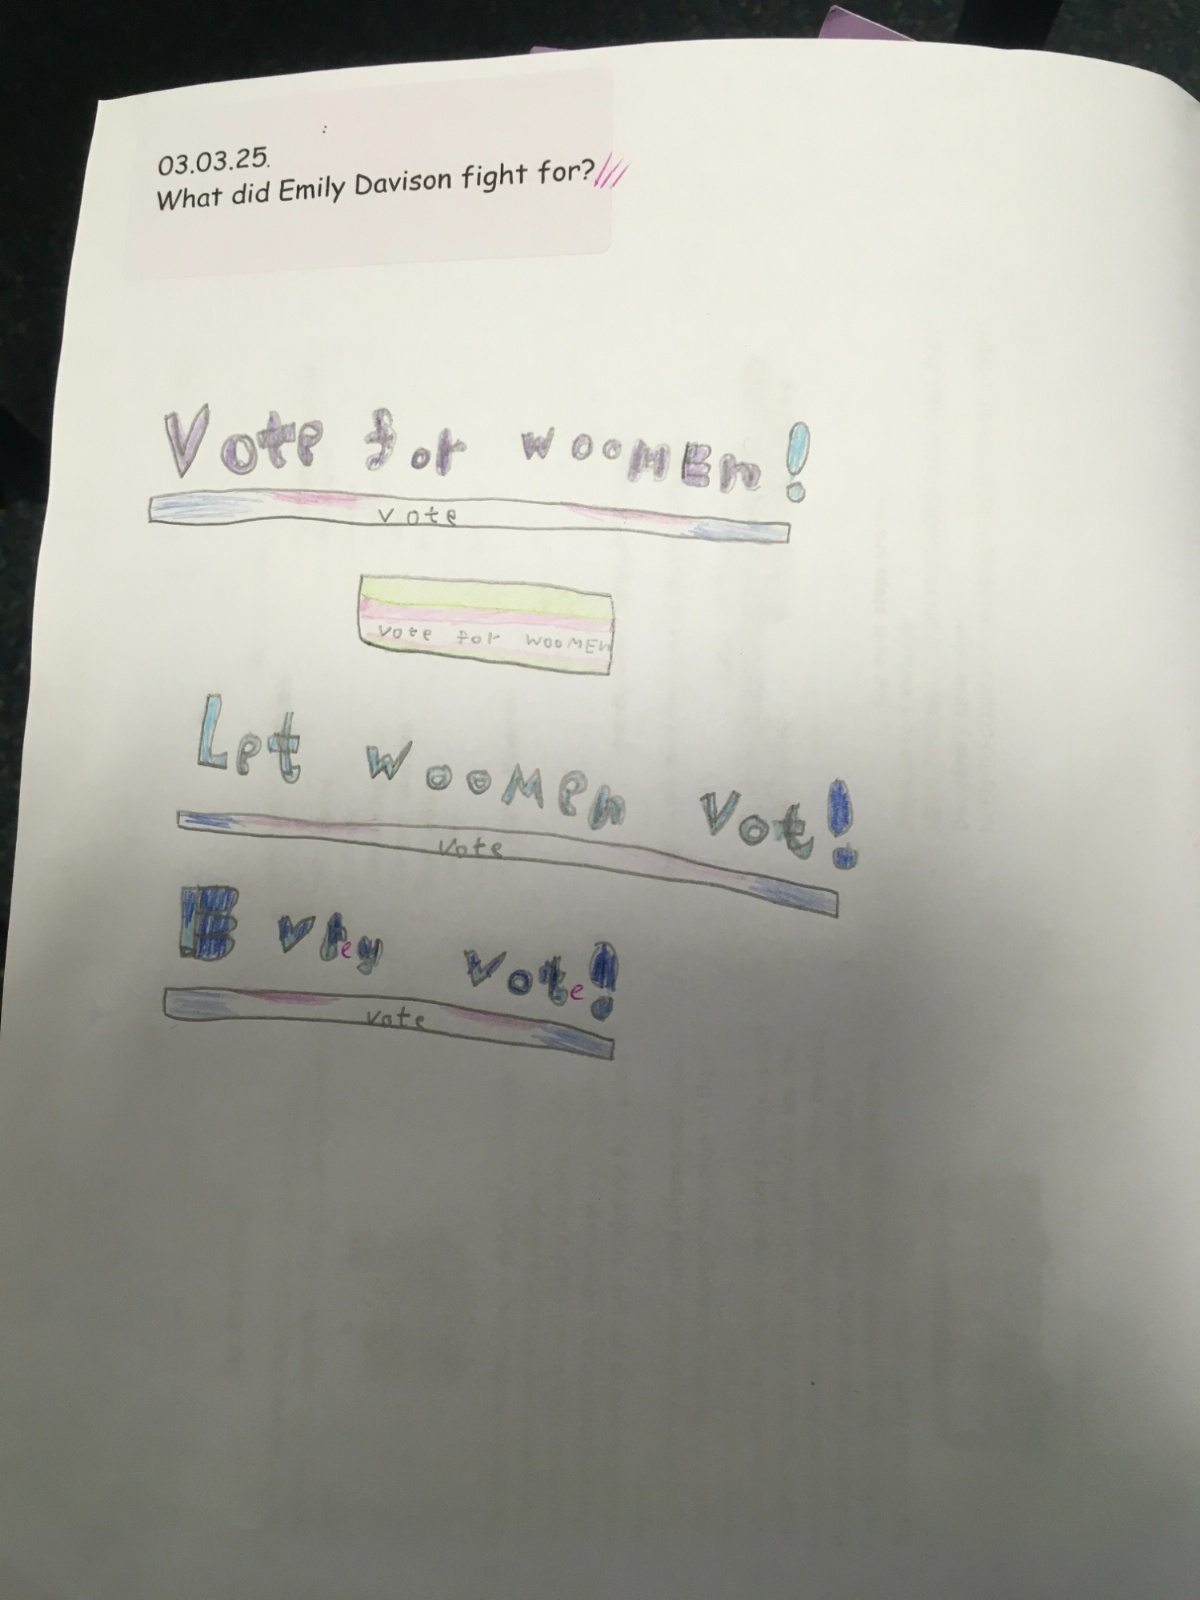 03.03.25.
What did Emily Davison fight for?
Vote for woomEn!
vote
vote for wooMEn
Let wooMen Vot!
vote
E vrey Vote!
vote